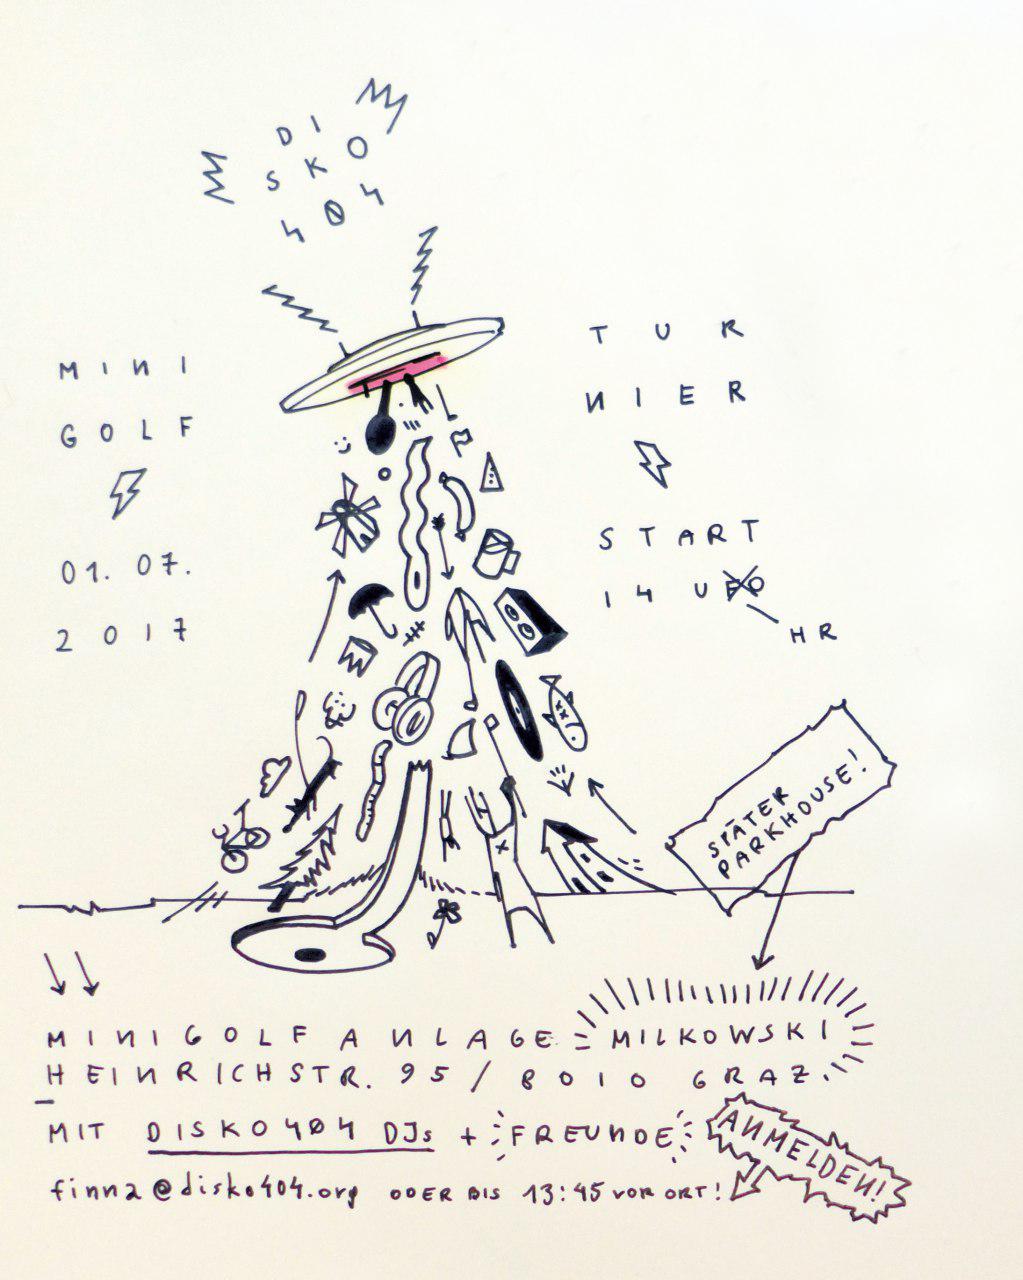 DI
SKO
404
MINI
GOLF
01. 07.
2017
TUR
NIER
START
14 UFO
HR
SPÄTER
PARKHOUSE!
MINIGOLFANLAGE MILKOWSKI
HEINRICHSTR. 95 / 8010 GRAZ.
MIT DISKO404 DJs + FREUNDE
ANMELDEN!
finna@disko404.org ODER BIS 13:45 VOR ORT!